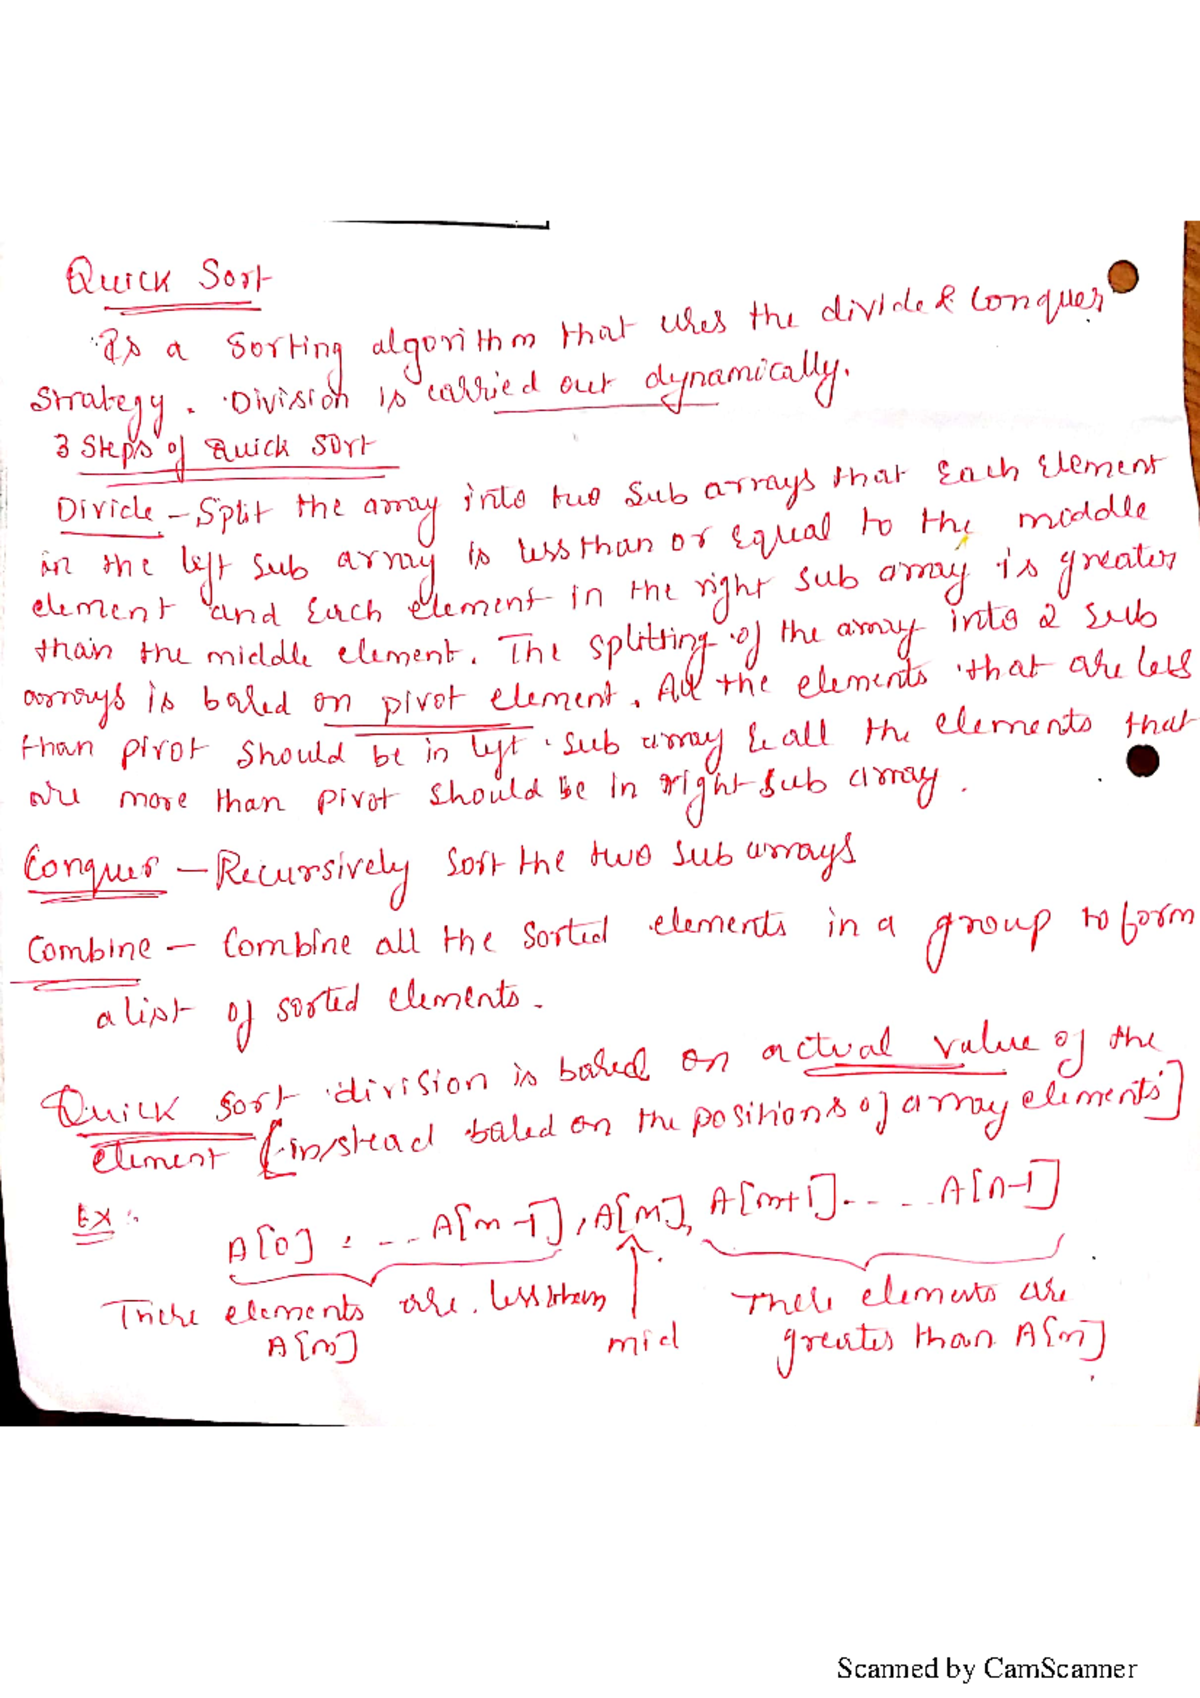 Quick Sort
Is a sorting algorithm that uses the divide & Conquer
Strategy. Division is carried out dynamically.
3 Steps of Quick Sort
Divide - Split the array into two sub arrays that Each Element
in the left sub array is less than or Equal to the middle
element and Each element in the right sub array is greater
than the middle element. The splitting of the array into 2 sub
arrays is based on pivot element. All the elements that are less
than pivot should be in left sub array & all the elements that
are more than pivot should be in right sub array.
Conquer - Recursively sort the two sub arrays
Combine - Combine all the sorted elements in a group to form
a list of sorted elements.
Quick sort division is based on actual value of the
element [instead based on the positions of array elements]
Ex :-
A[0] . . . . A[m-1], A[m], A[m+1] . . . . A[n-1]
These elements are less than A[m]
mid
These elements are greater than A[m]
Scanned by CamScanner